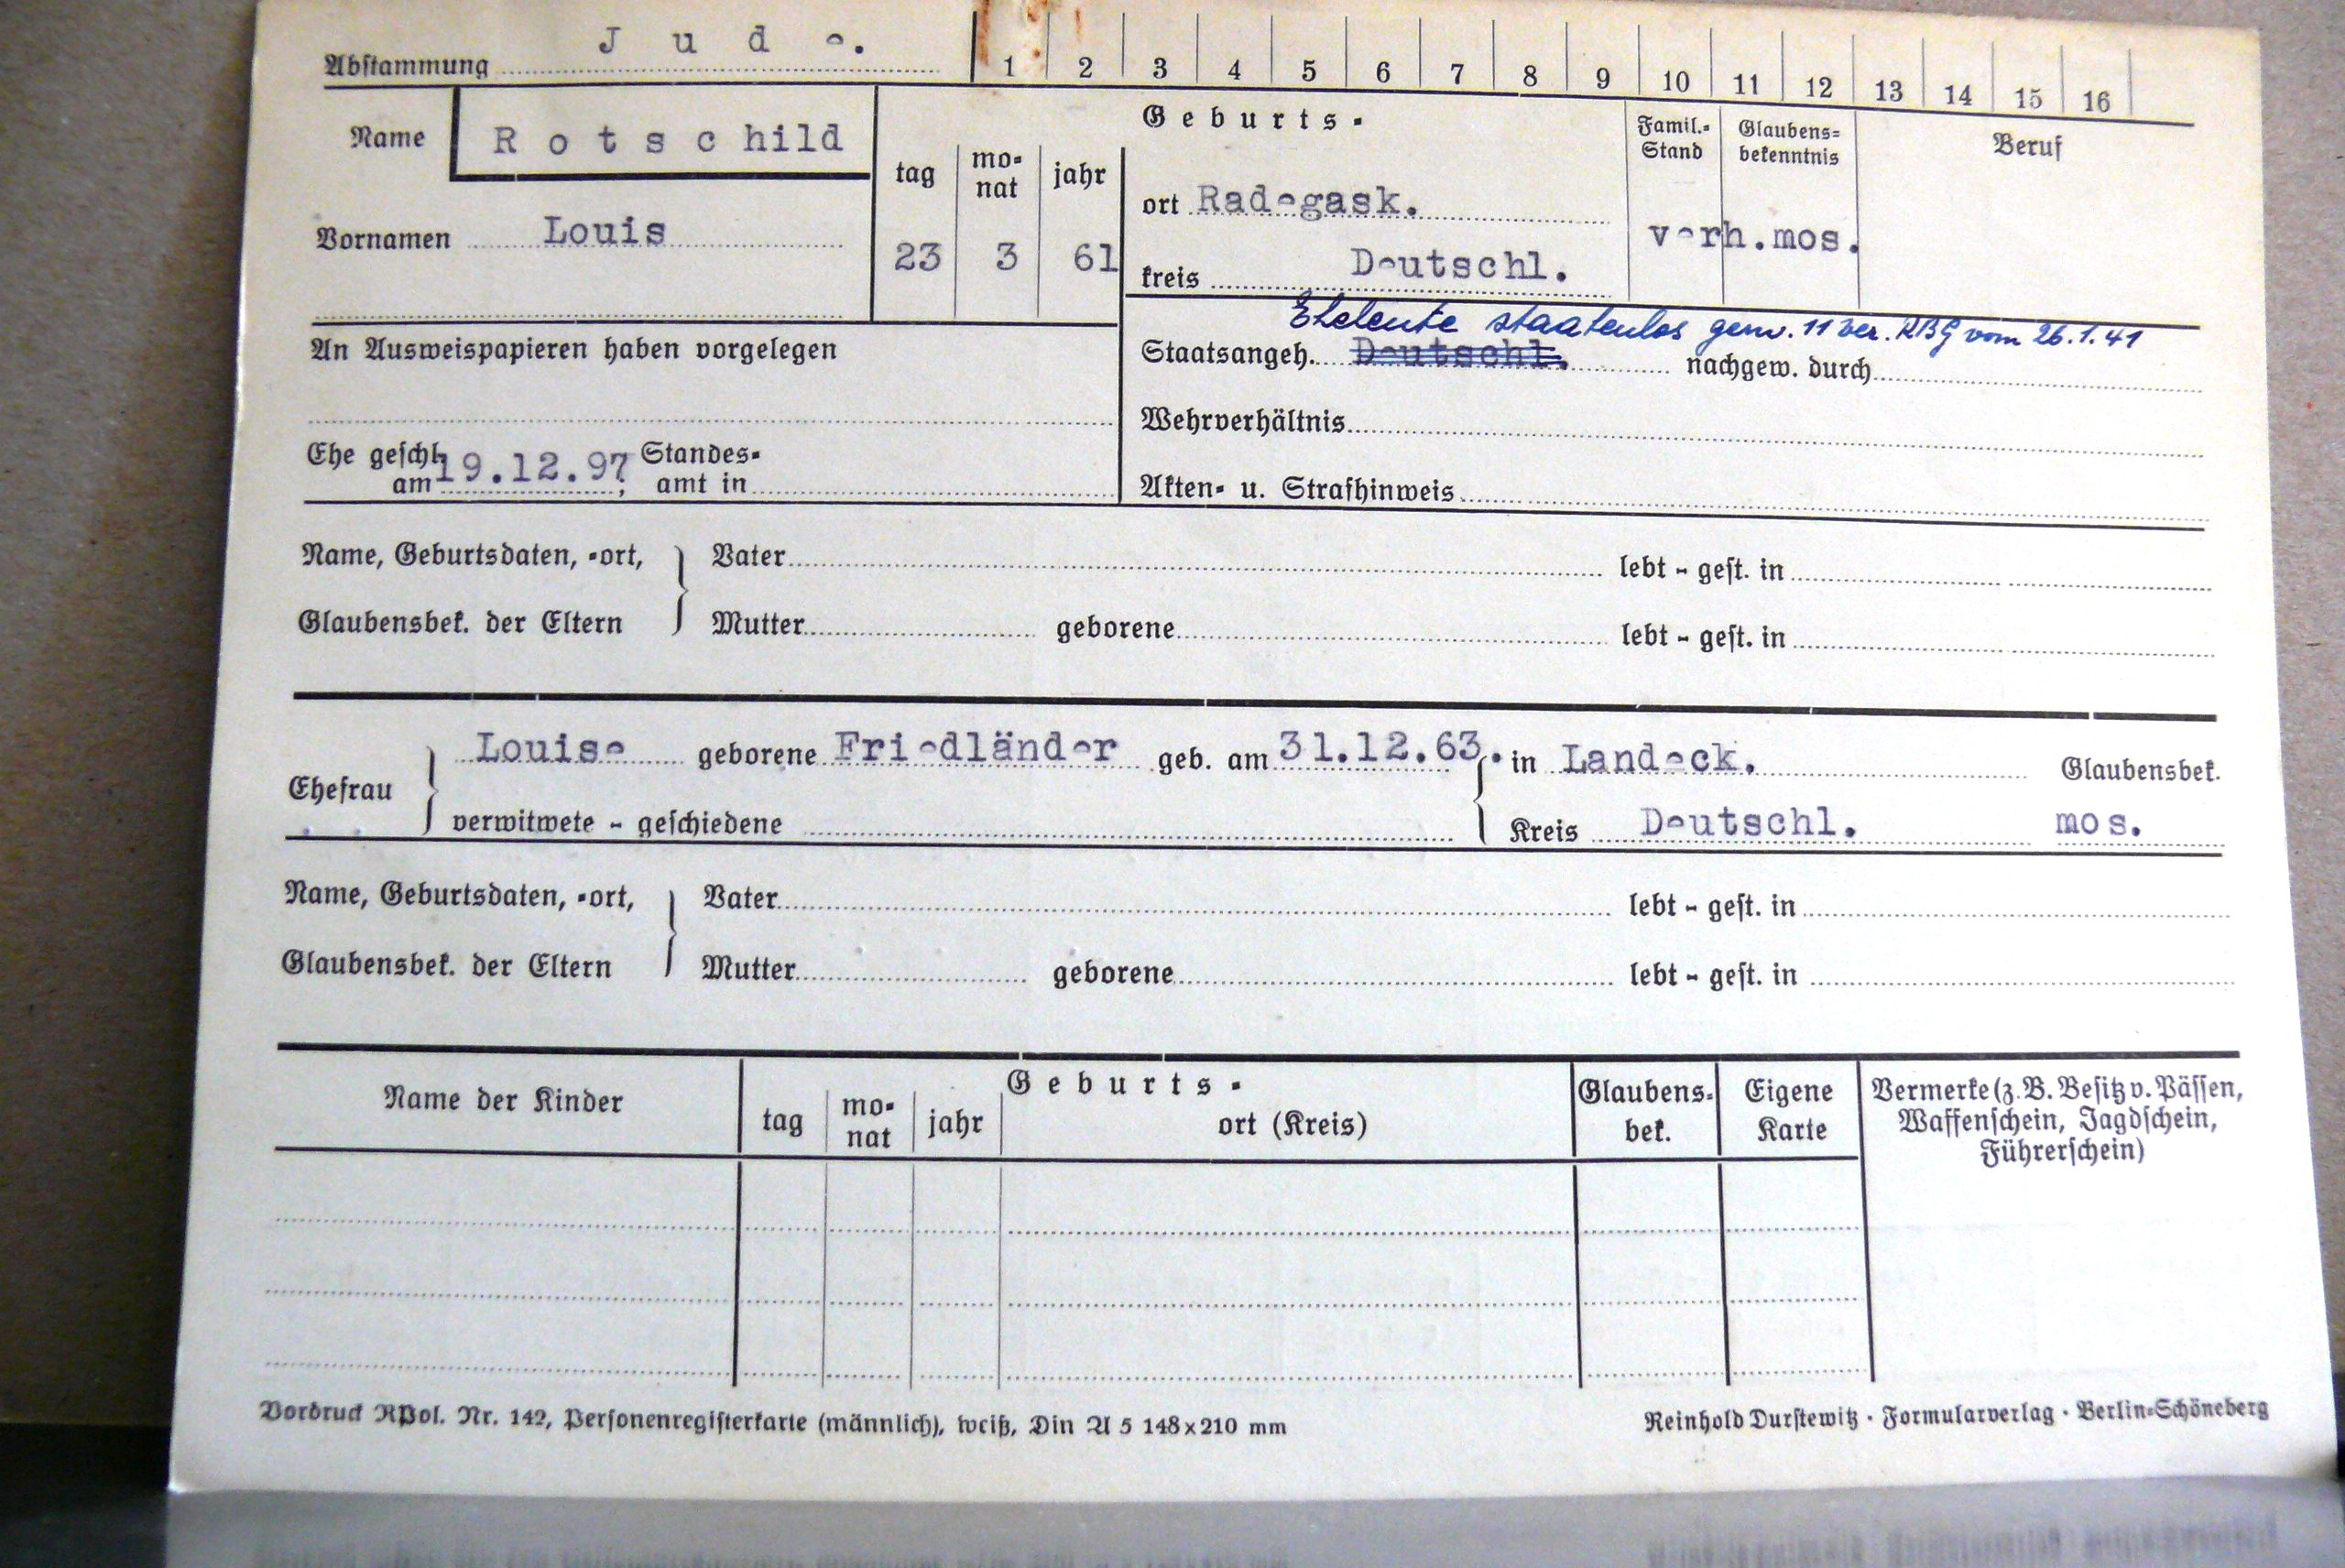 Abstammung J u d e.
1 2 3 4 5 6 7 8 9 10 11 12 13 14 15 16
Name R o t s c hild
Vornamen Louis
Geburts-
tag monat jahr
23 3 61
ort Radegask.
kreis Deutschl.
Famil.-Stand Glaubens-bekenntnis Beruf
verh. mos.
An Ausweispapieren haben vorgelegen
Eheleute staatenlos gem. 11 Ver. RBG vom 26.1.41
Staatsangeh. Deutschl. nachgew. durch
Wehrverhältnis
Ehe geschl. am 19.12.97, Standes-amt in
Akten- u. Strafhinweis
Name, Geburtsdaten, -ort, Vater lebt - gest. in
Glaubensbek. der Eltern Mutter geborene lebt - gest. in
Ehefrau Louise geborene Friedländer geb. am 31.12.63. in Landeck. Glaubensbek.
verwitwete - geschiedene Kreis Deutschl. mos.
Name, Geburtsdaten, -ort, Vater lebt - gest. in
Glaubensbek. der Eltern Mutter geborene lebt - gest. in
Name der Kinder
Geburts-
tag monat jahr ort (Kreis)
Glaubens-bek.
Eigene Karte
Vermerke (z. B. Besitz v. Pässen,
Waffenschein, Jagdschein,
Führerschein)
Vordruck RPol. Nr. 142, Personenregisterkarte (männlich), weiß, Din A 5 148x210 mm
Reinhold Durstewitz · Formularverlag · Berlin-Schöneberg